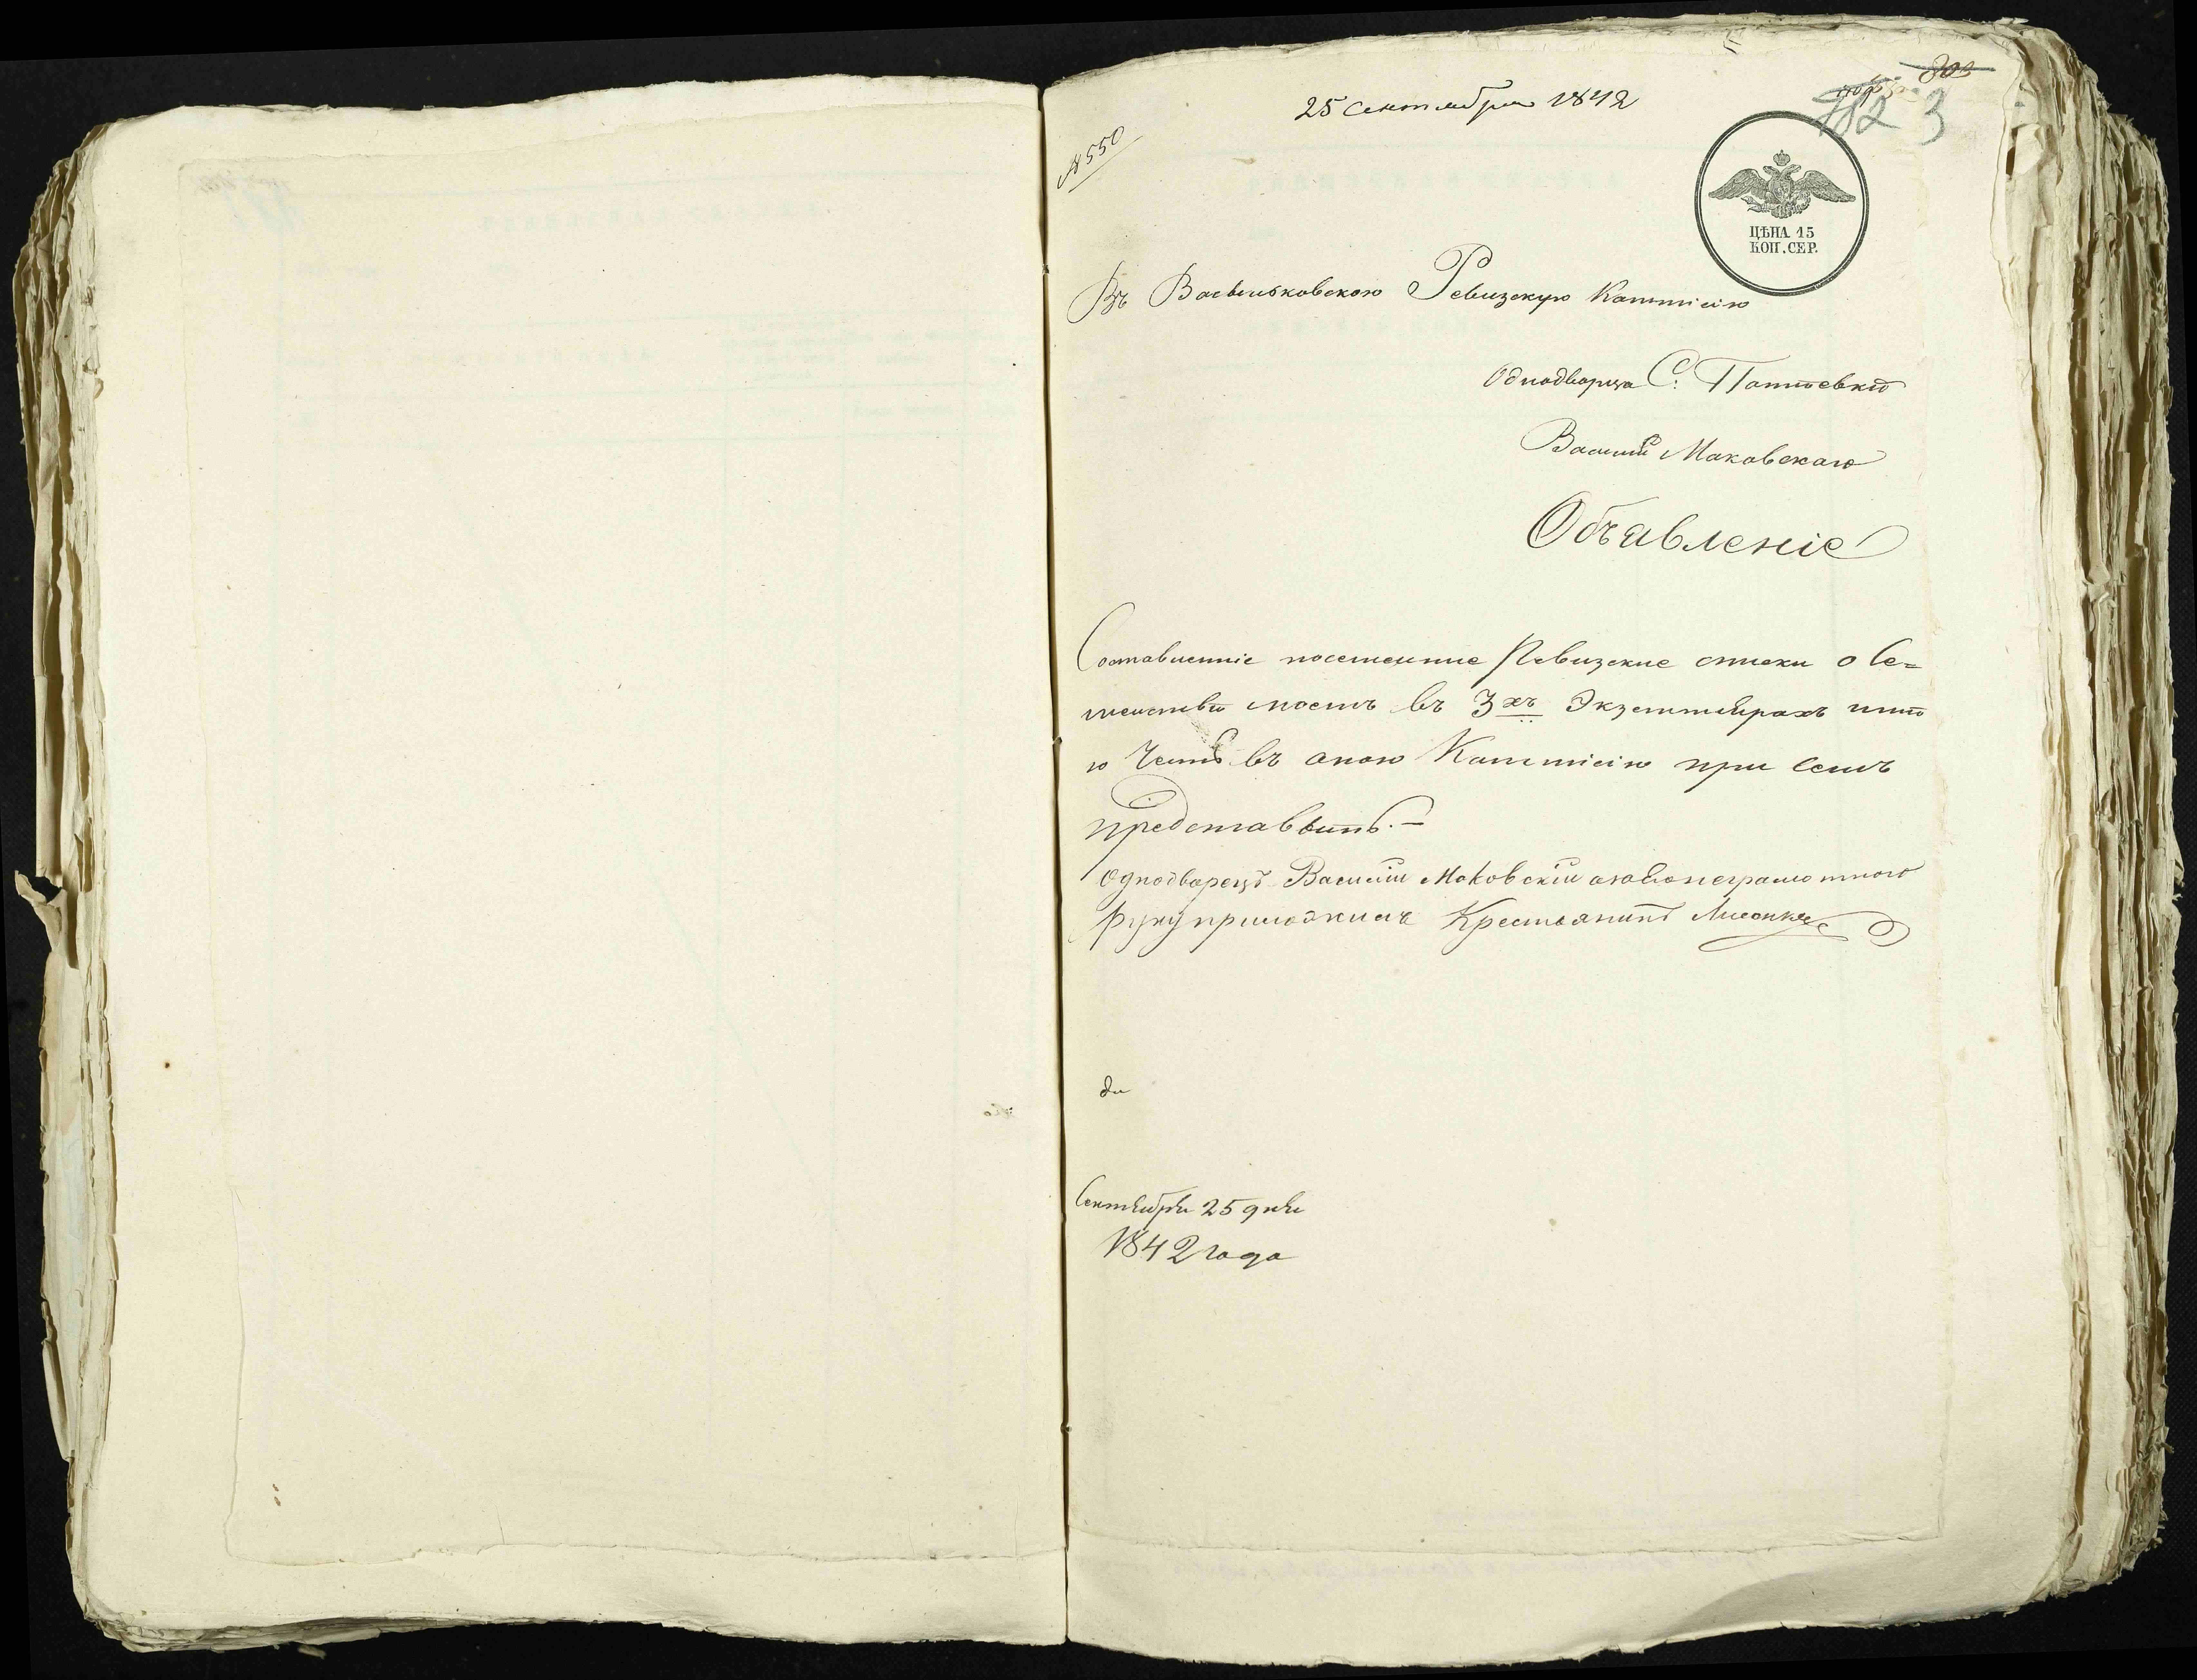 25 Сентября 1842
№ 550
982 3
ЦѢНА 15
КОП. СЕР.
Въ Васильковскою Ревизскую Коммисію
Однодворца С.
Василія Маковскаго
Объявленіе
Составленніе посемейние Ревизские списки о Се-
мействи моемъ въ 3хъ Экземплярахъ имѣ
ю Честь въ оною Коммисію при семъ
представить. —
Однодворецъ Василій Маковскій а за него неграмотного
руку приложилъ Крестьянинъ
Сентября 25 дня
1842 года